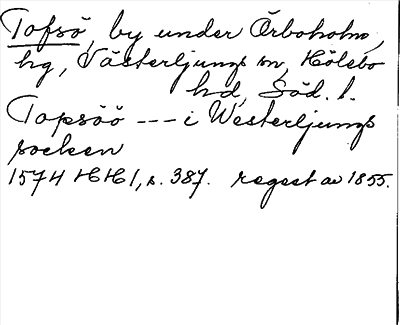 Tofsö, by under Örboholm,
hg, Västerljungs sn, Hölebo
hd, Söd. l.
Topsöö --- i Westerljungs
socken
1574 HH 1, s. 387. regest av 1855.